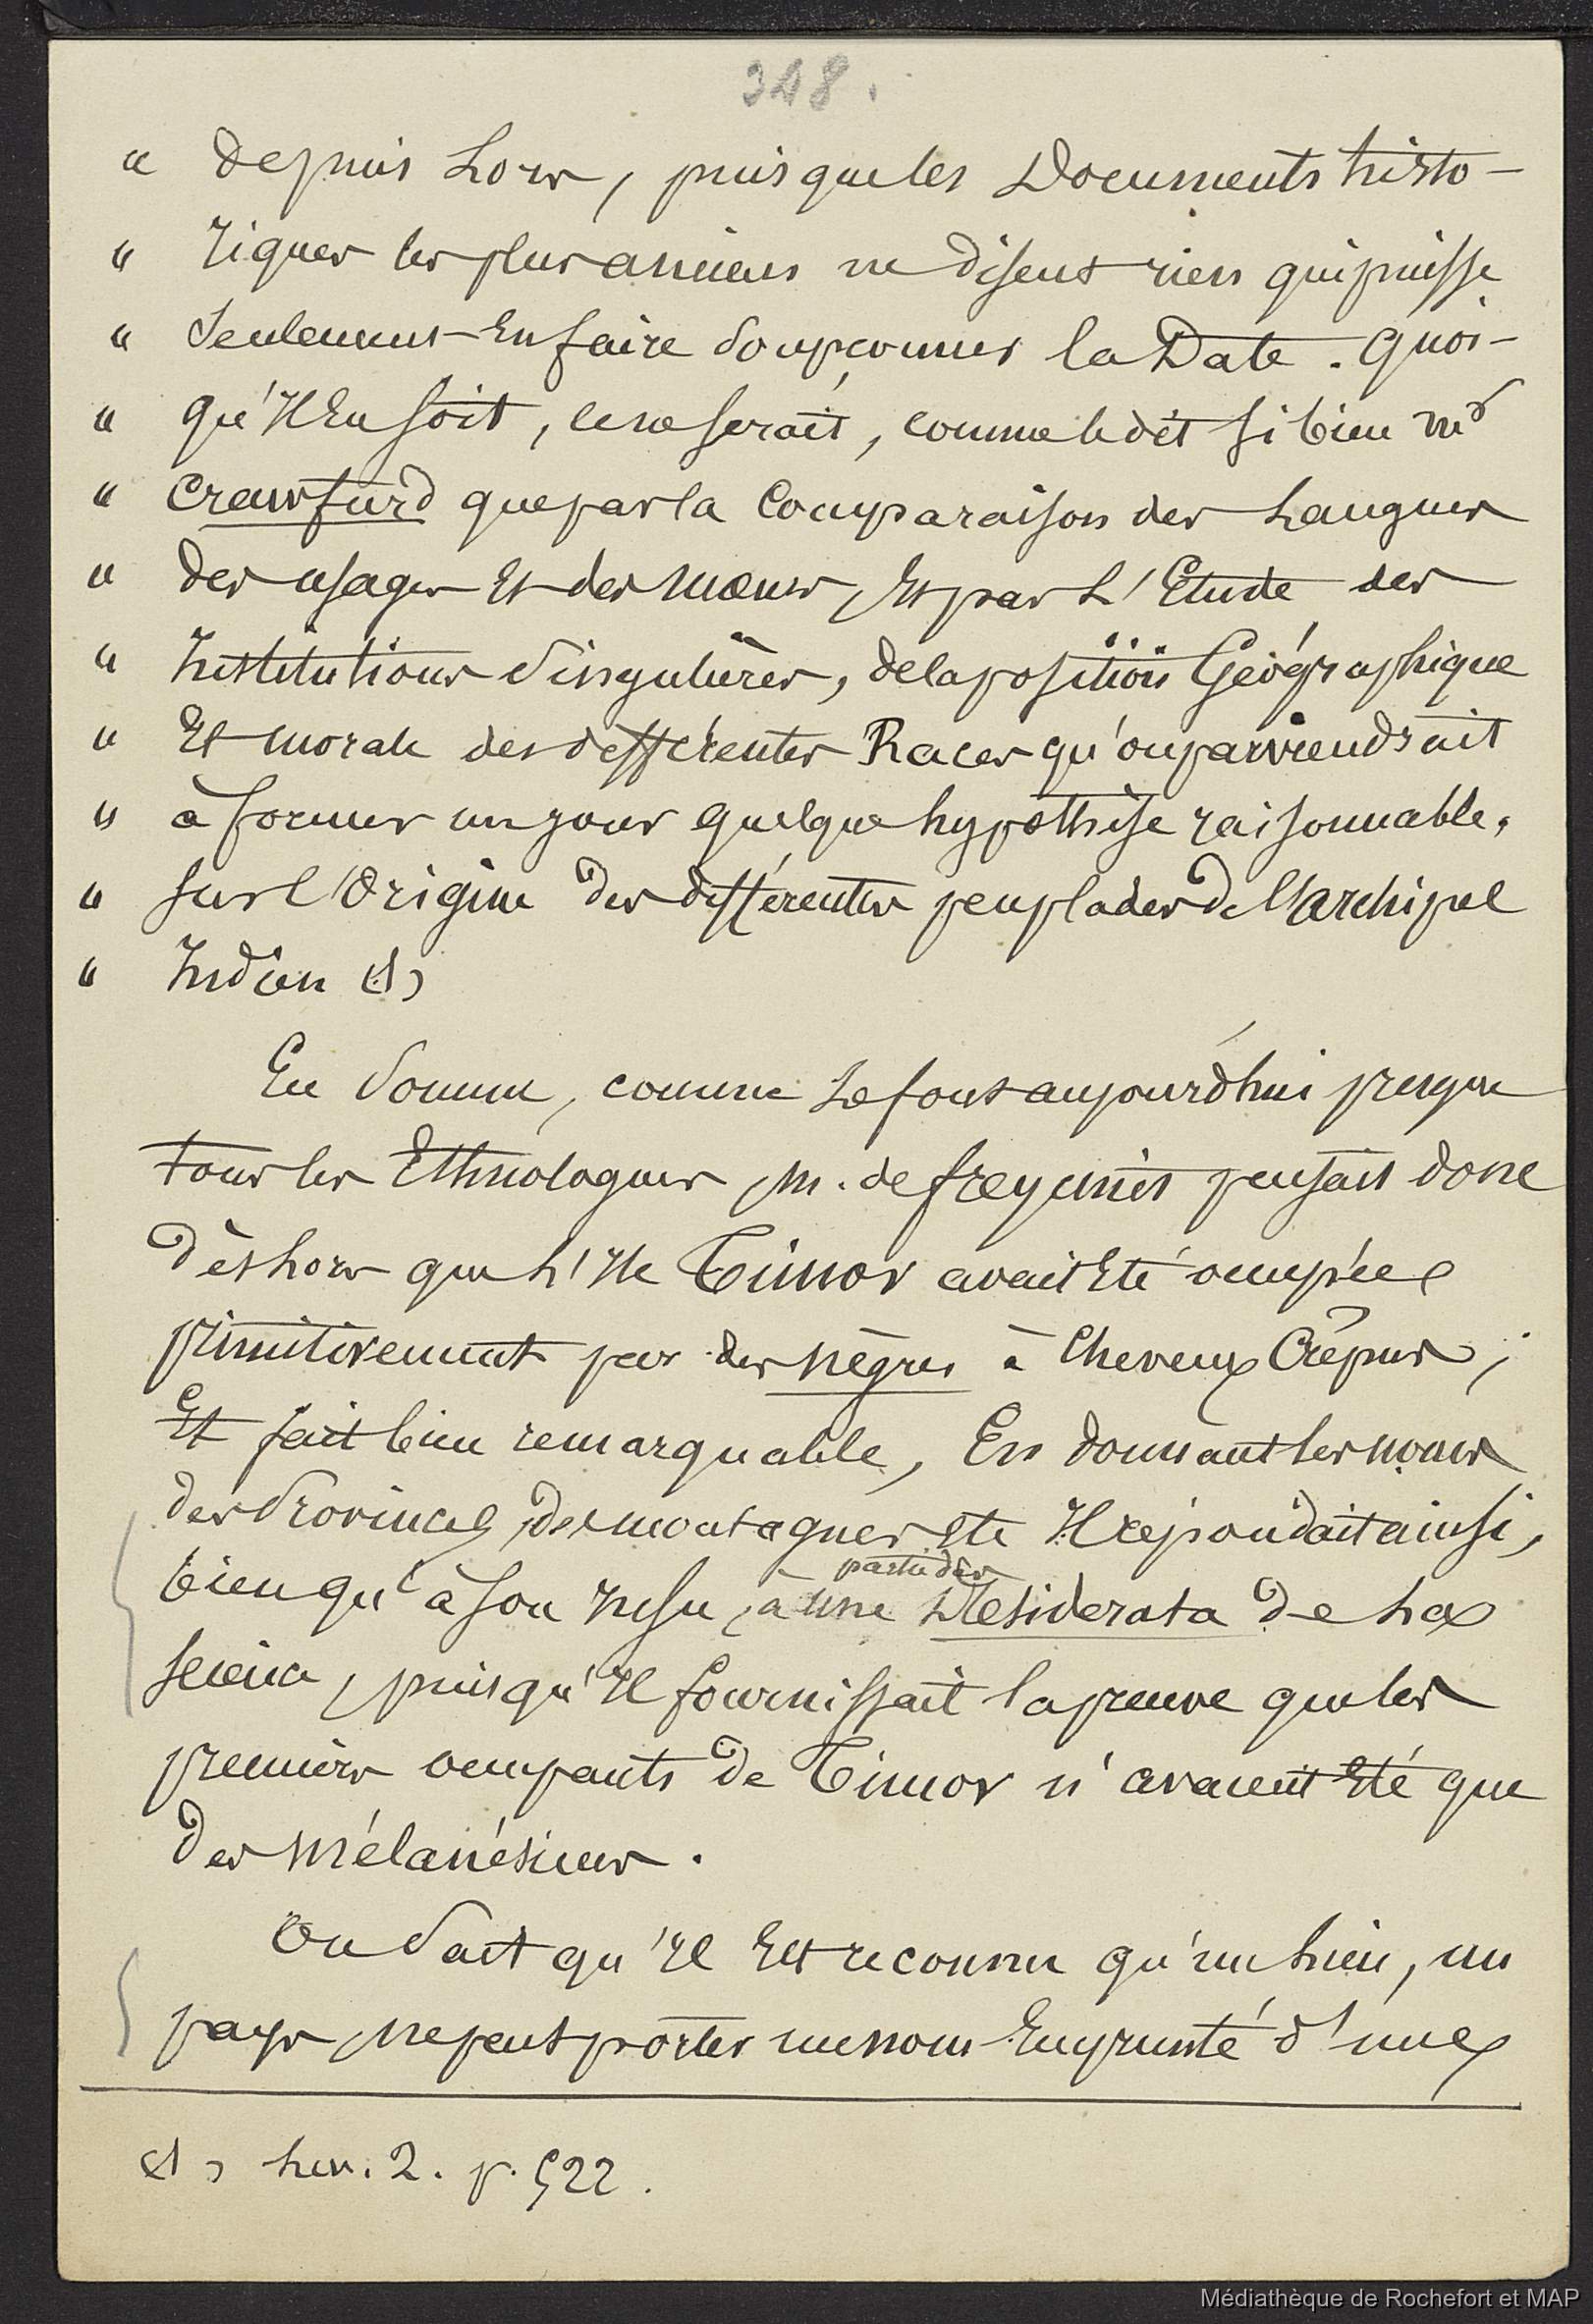 348.
" depuis Lors, puisque les Documents histo-
" riques les plus anciens ne disent rien qui puisse
" Seulement En faire soupçonner la Date. Quoi-
" qu'Il En soit, ce ne serait, comme le dit si bien Mr
" Crawfurd que par la Comparaison des Langues
" des usages Et des Mœurs, Et par L'Etude des
" Institutions Singulières, de la position Géographique
" Et morale des différentes Races qu'on parviendrait
" à former un jour quelque hypothèse raisonnable,
" sur l'Origine des différentes peuplades de l'archipel
" Indien (1)
En Somme, comme Le font aujourd'hui presque
tous les Ethnologues, M. de freycinet pensait donc
Dès Lors que L'Ile Timor avait Eté occupée
primitivement par des nègres à Cheveux Crêpus;
Et fait bien remarquable, En donnant les noms
des Provinces, des montagnes Etc Il répondait ainsi,
partie des
bien qu'à son Insu, à une Desiderata de La
science, puisqu'Il fournissait la preuve que les
premiers occupants de Timor n'avaient Eté que
des Mélanésiens.
On Sait qu'Il Est reconnu qu'un Lieu, un
pays, ne peut porter un nom Emprunté d'une
(1) Liv. 2. p. 522.
Médiathèque de Rochefort et MAP